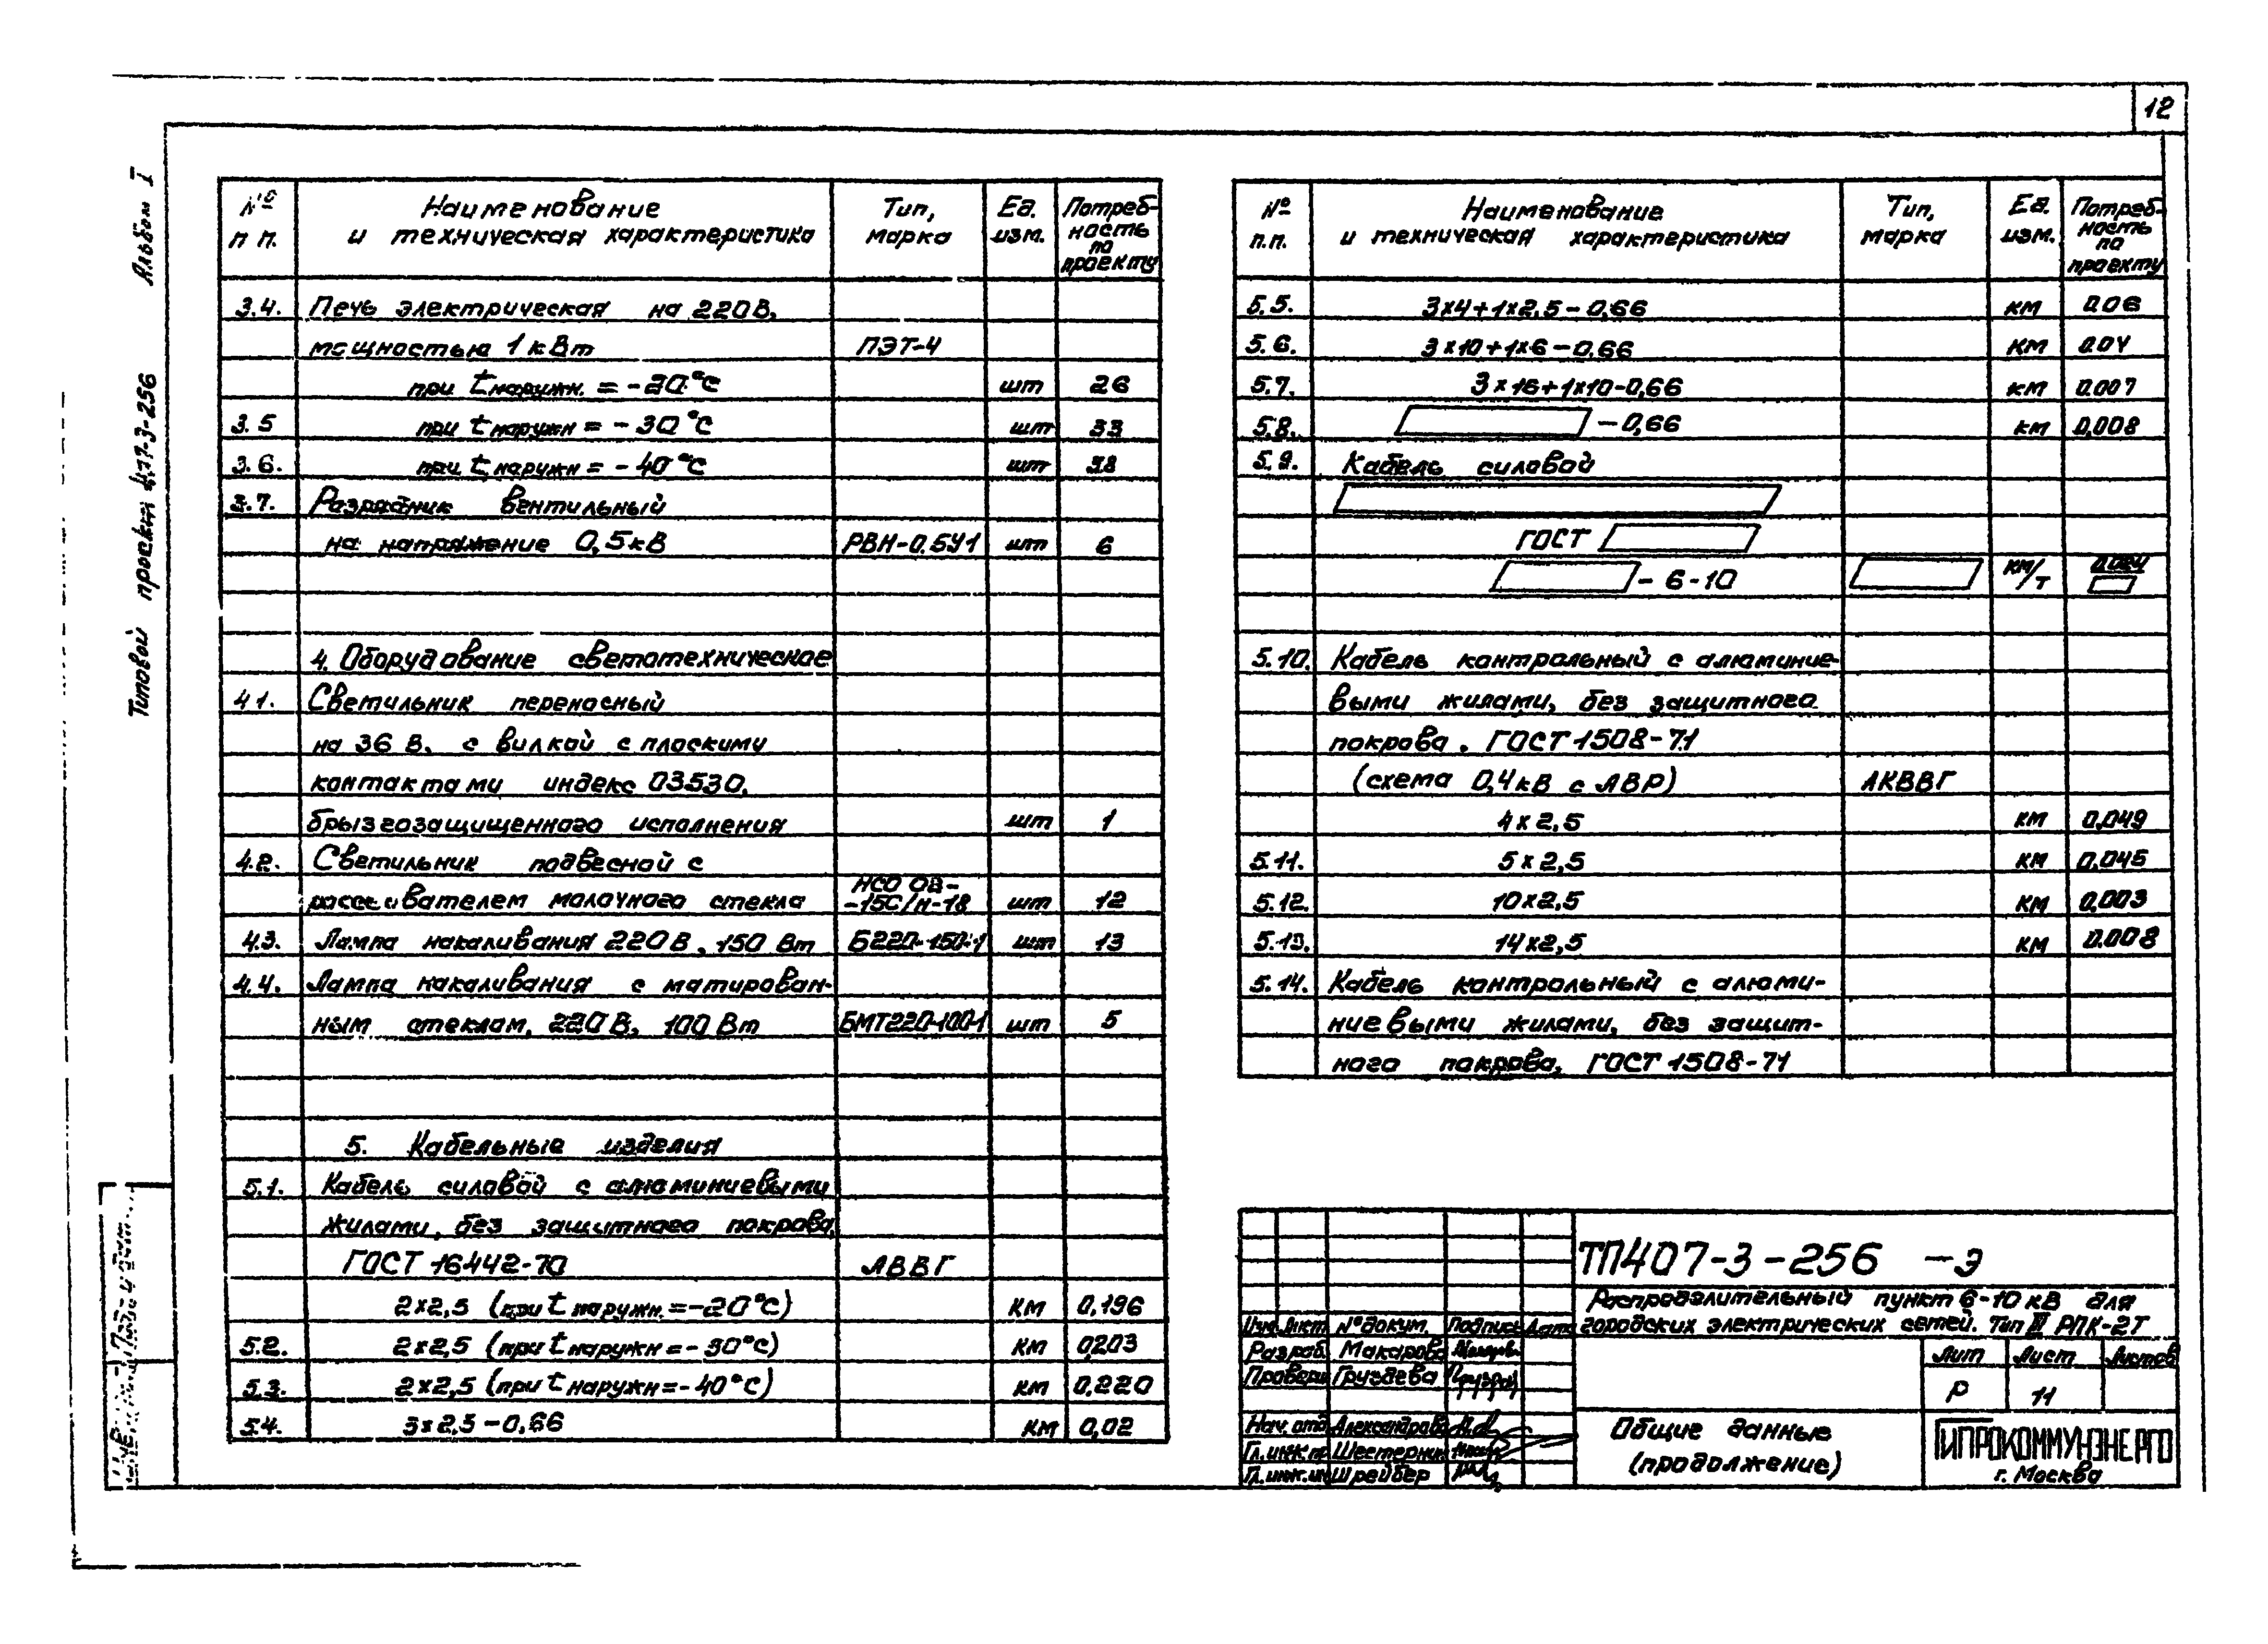 12
Альбом I
Типовой проект 407-3-256
№
п п.
Наименование
и техническая характеристика
Тип,
марка
Ед.
изм.
Потреб-
ность
по
проекту
3.4. Печь электрическая на 220В,
мощностью 1 кВт ПЭТ-4
при tнаружн. = -20°С шт 26
3.5 при tнаружн = -30°С шт 33
3.6. при tнаружн = -40°С шт 38
3.7. Разрядник вентильный
на напряжение 0,5кВ РВН-0.5У1 шт 6
4. Оборудование светотехническое
4.1. Светильник переносный
на 36 В. с вилкой с плоскими
контактами индекс 03530,
брызгозащищенного исполнения шт 1
4.2. Светильник подвесной с
рассеивателем молочного стекла НСО 08-
-150/Н-18 шт 12
4.3. Лампа накаливания 220В, 150 Вт Б220-150-1 шт 13
4.4. Лампа накаливания с матирован-
ным стеклом, 220В, 100 Вт БМТ220-100-1 шт 5
5. Кабельные изделия
5.1. Кабель силовой с алюминиевыми
жилами, без защитного покрова,
ГОСТ 16442-70 АВВГ
2х2,5 (при t наружн. =-20°С) км 0,196
5.2. 2х2,5 (при t наружн =-30°С) км 0,203
5.3. 2х2,5 (при t наружн =-40°С) км 0,220
5.4. 3х2,5-0,66 км 0,02
№
п.п.
Наименование
и техническая характеристика
Тип,
марка
Ед.
изм.
Потреб-
ность
по
проекту
5.5. 3х4+1х2,5-0,66 км 0.06
5.6. 3х10+1х6-0.66 км 0.04
5.7. 3х16+1х10-0,66 км 0.007
5.8. -0,66 км 0,008
5.9. Кабель силовой
ГОСТ
-6-10 км/т 0.024
5.10. Кабель контрольный с алюминие-
выми жилами, без защитного
покрова. ГОСТ 1508-71
(схема 0,4кВ с АВР) АКВВГ
4х2,5 км 0,049
5.11. 5х2,5 км 0,045
5.12. 10х2,5 км 0,003
5.13. 14х2,5 км 0.008
5.14. Кабель контрольный с алюми-
ниевыми жилами, без защит-
ного покрова, ГОСТ 1508-71
ТП407-3-256 -Э
Распределительный пункт 6-10 кВ для
городских электрических сетей. Тип III РПК-2Т
Лист №докум. Подпись Дата
Разраб. Макарова
Провери Груздева
Нач. отд Александрова
Гл.инж.пр Шестерник
Гл.инж.ин Шрейбер
Лит Лист Листов
Р 11
Общие данные
(продолжение)
ГИПРОКОММУНЭНЕРГО
г. Москва